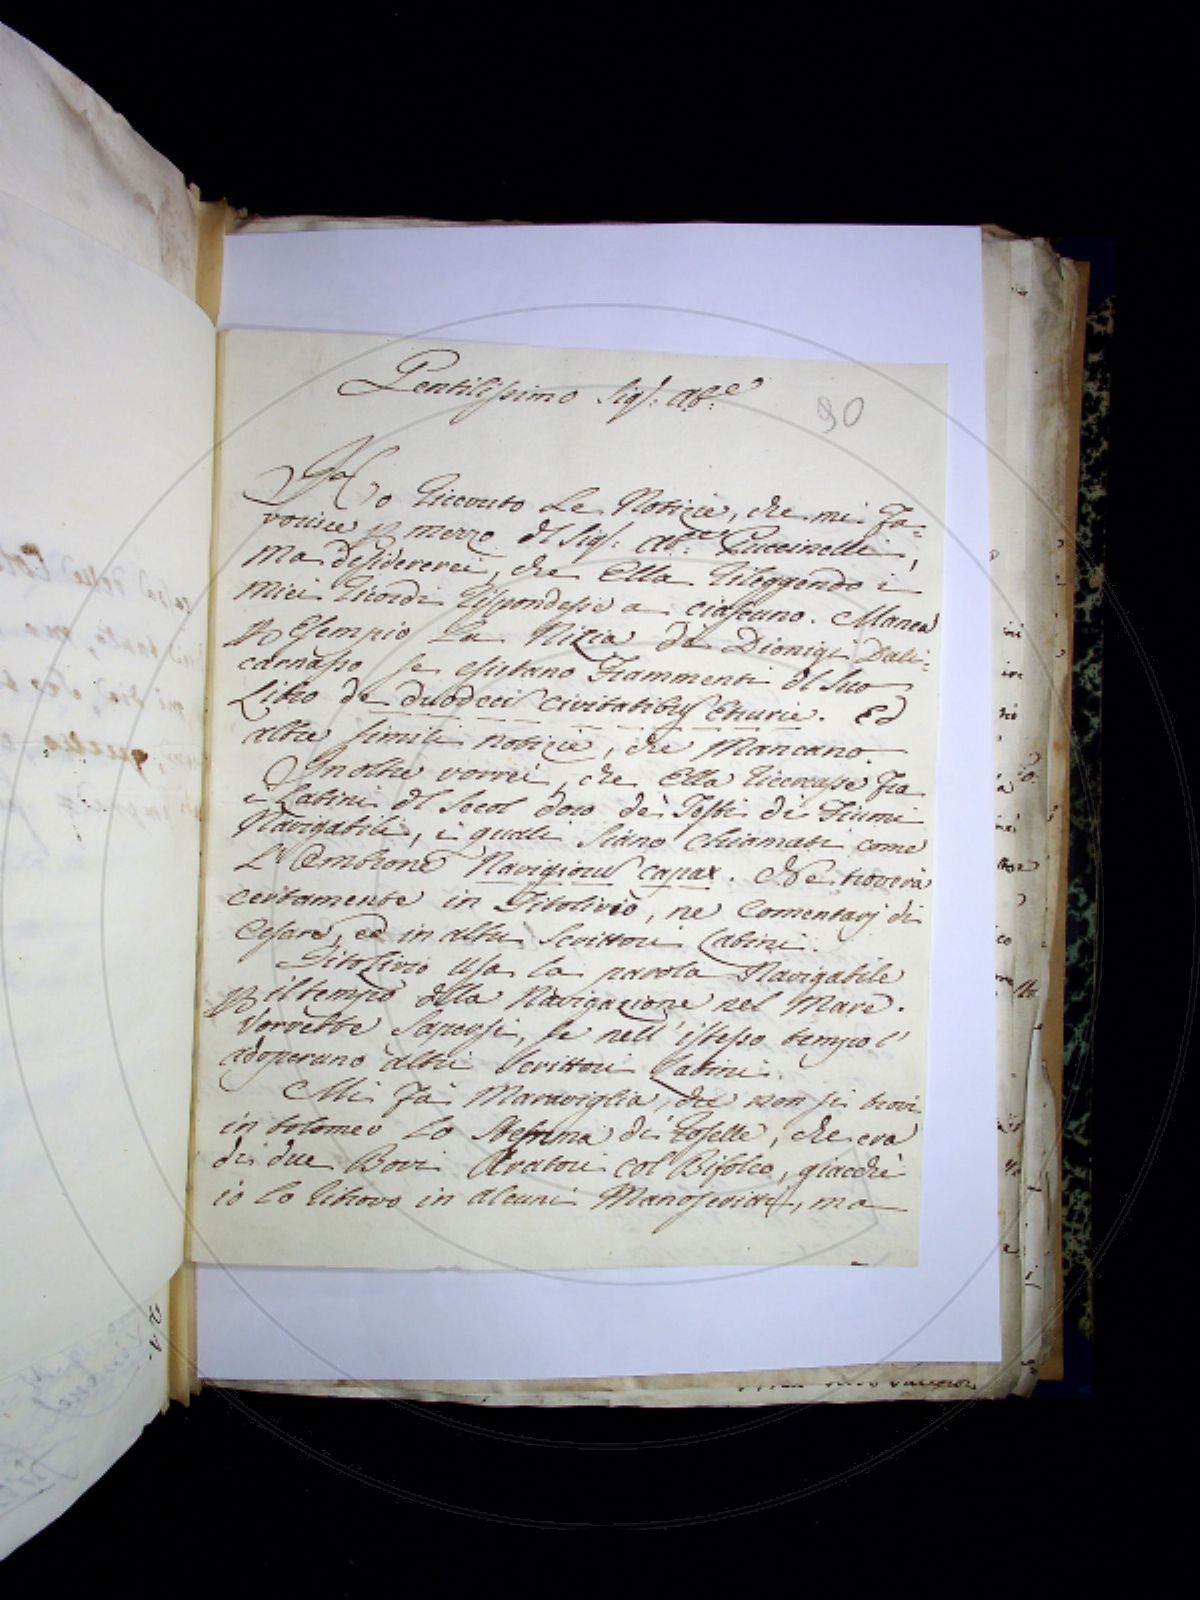 Gentilissimo Sig:r Ab:e
90
Ho riceuuto le Notizie, che mi fa=
vorisce p mezzo dl Sig:r Ab:e Puccinelli,
ma desidererei, che Ella rileggendo i
miei ricordi rispondesse a ciascuno. Manca
p esempio la Notizia da Dionigi Dali=
carnasso se esistano Frammenti dl suo
Libro de duodeci civitatibus Etrurie. Ed
altre simili notizie, che mancano.
Inoltre vorrei, che Ella ricercasse fra
i Latini dl secol d'oro de' Testi di Fiumi
Navigabili, i quali siano chiamati come
L'Ombrone Navigiorum capax. Ne troverà
certamente in Titolivio, ne Comentarj di
Cesare, ed in altri Scrittori Latini.
Titolivio usa la parola Navigabile
p il tempo dlla Navigazione nel Mare.
Vorrebbe sapersi, se nell' istesso tempo l'
adoperano altri Scrittori Latini.
Mi fà Maraviglia, che non si trovi
in tolomeo lo Stemma di Roselle, che era
di due Bovi Aratori col Bifolco, giacchè
io lo ritrovo in alcuni Manoscritti, ma